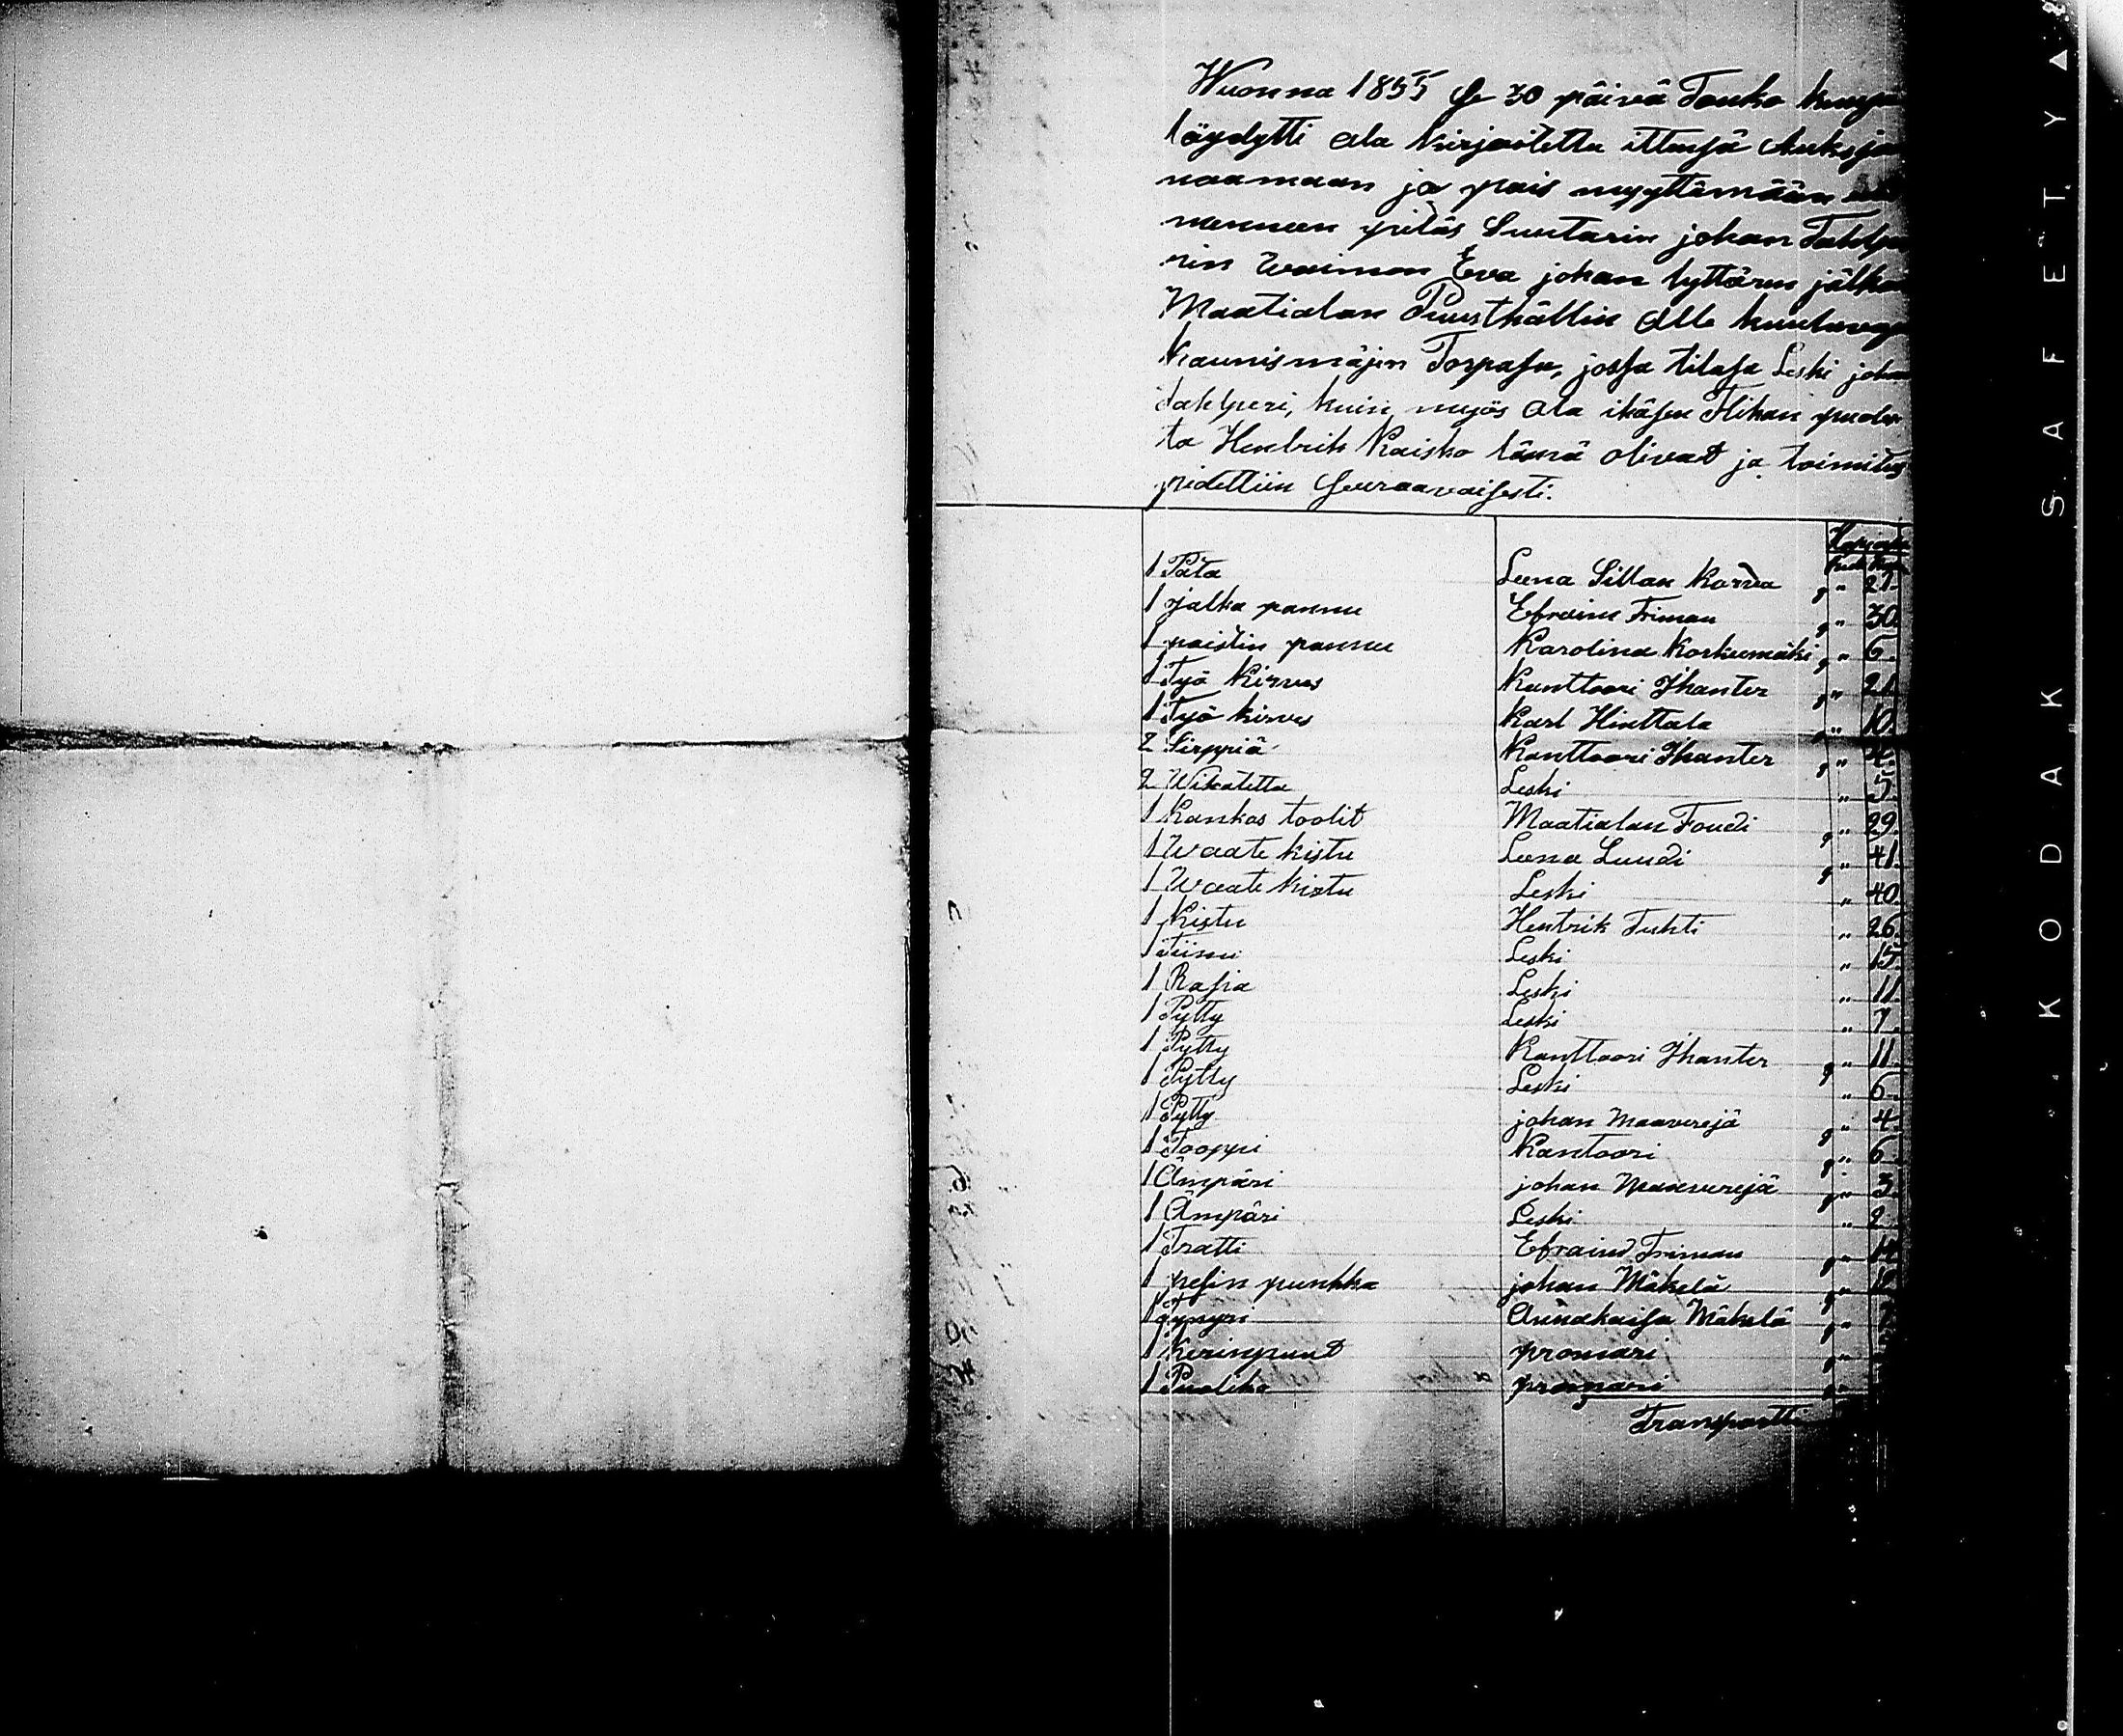 Wuonna 1855 se 30 päivä Touko
löydytti ala kirjoitettu ittensä
naamaan ja pois myyttämään
menneen pitäs Suutarin johan
rin Waimon Eva johan tyttären
Maatialan Puusthällin alle
Kaunismäjen Torpasa, josta tilasa Leski
dahlperi, kuin myös ala ikäsen Flikan
ta Hendrik Kaisko läsnä olivat ja toimitus
pidettiin seuraavaisesti.
1 Pata Leena Sillan Korva " 21.
1 jalka pannu Efraim Friman " 30.
1 paistin pannu Karolina Korkeemäki " 6.
1 Työ Kirves Kanttoori Ihanter " 21.
1 Työ kirves Karl Hinttala " 10.
2 Sirppiä Kanttoori Ihanter "
2 Wikatetta Leski " 5.
1 Kankas toolit Maatialan Foudi " 29.
1 Waate kistu Leena Lundi " 41.
1 Waate kistu Leski " 40.
1 Kistu Hentrik Tuhti " 26.
1 Tiinu Leski " 15.
1 Rasia Leski " 11.
1 Pytty Leski " 7.
1 Pytty Kanttoori Ihanter " 11.
1 Pytty Leski " 6.
1 Pytty johan Maaverejä " 4.
1 Tooppi Kantoori " 6.
1 Ämpäri johan Maaverejä " 3.
1 Ämpäri Leski " 2.
1 Tratti Efraim Friman "
1 pesin punkka johan Mäkelä "
1 Annakaisa Mäkelä "
1 Kerinpuut promari "
1 Puolikko promari "
Transportti
KODAK SAFETY